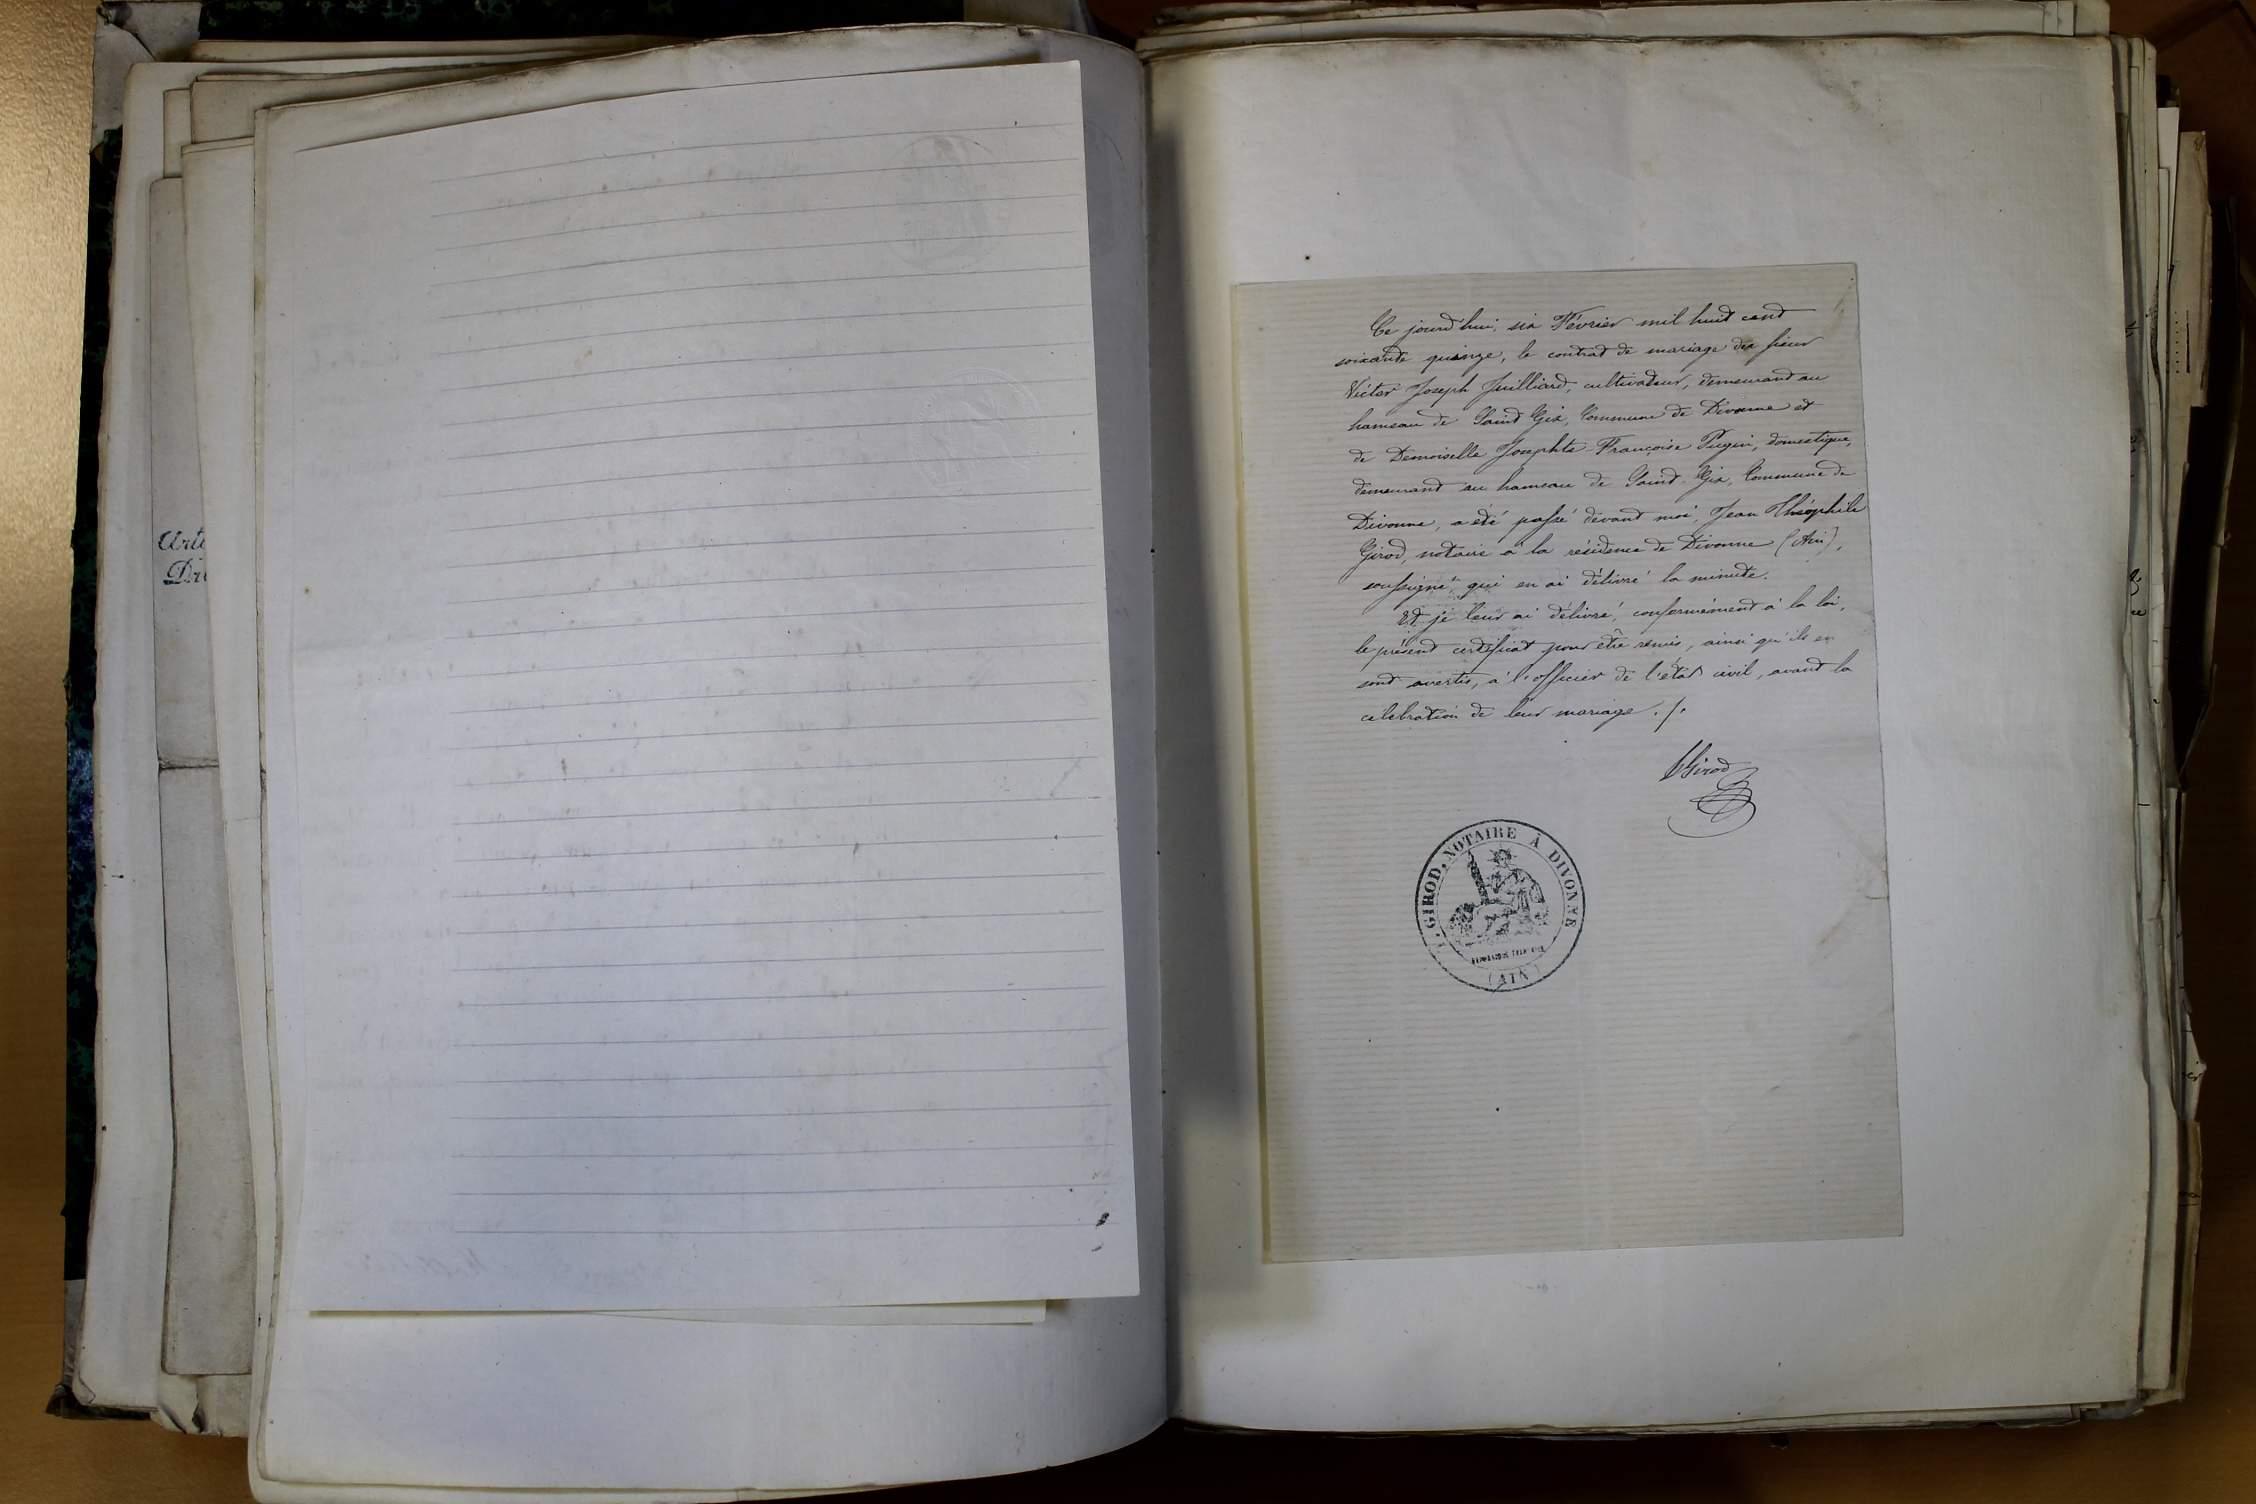 Arti
Div
Ce jourd'hui, six Février mil huit cent
soixante quinze, le contrat de mariage des sieur
Victor Joseph Juilliard, cultivateur, demeurant au
hameau de Saint Gix, Commune de Divonne et
de Demoiselle Josephte Françoise Pugin, domestique,
demeurant au hameau de Saint-Gix, Commune de
Divonne, a été passé devant moi, Jean Théophile
Girod, notaire à la résidence de Divonne (Ain),
soussigné, qui en ai délivré la minute.
Et je leur ai délivré, conformément à la loi,
le présent certificat pour être remis, ainsi qu'ils en
sont avertis, à l'officier de l'état civil, avant la
célébration de leur mariage ./.
Girod
GIROD, NOTAIRE À DIVONNE
(AIN)